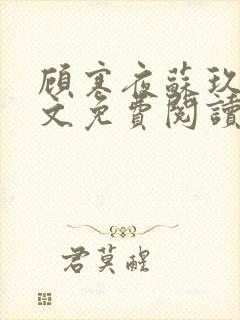 顾寒夜蘇玖
文免費閱讀
君莫醒